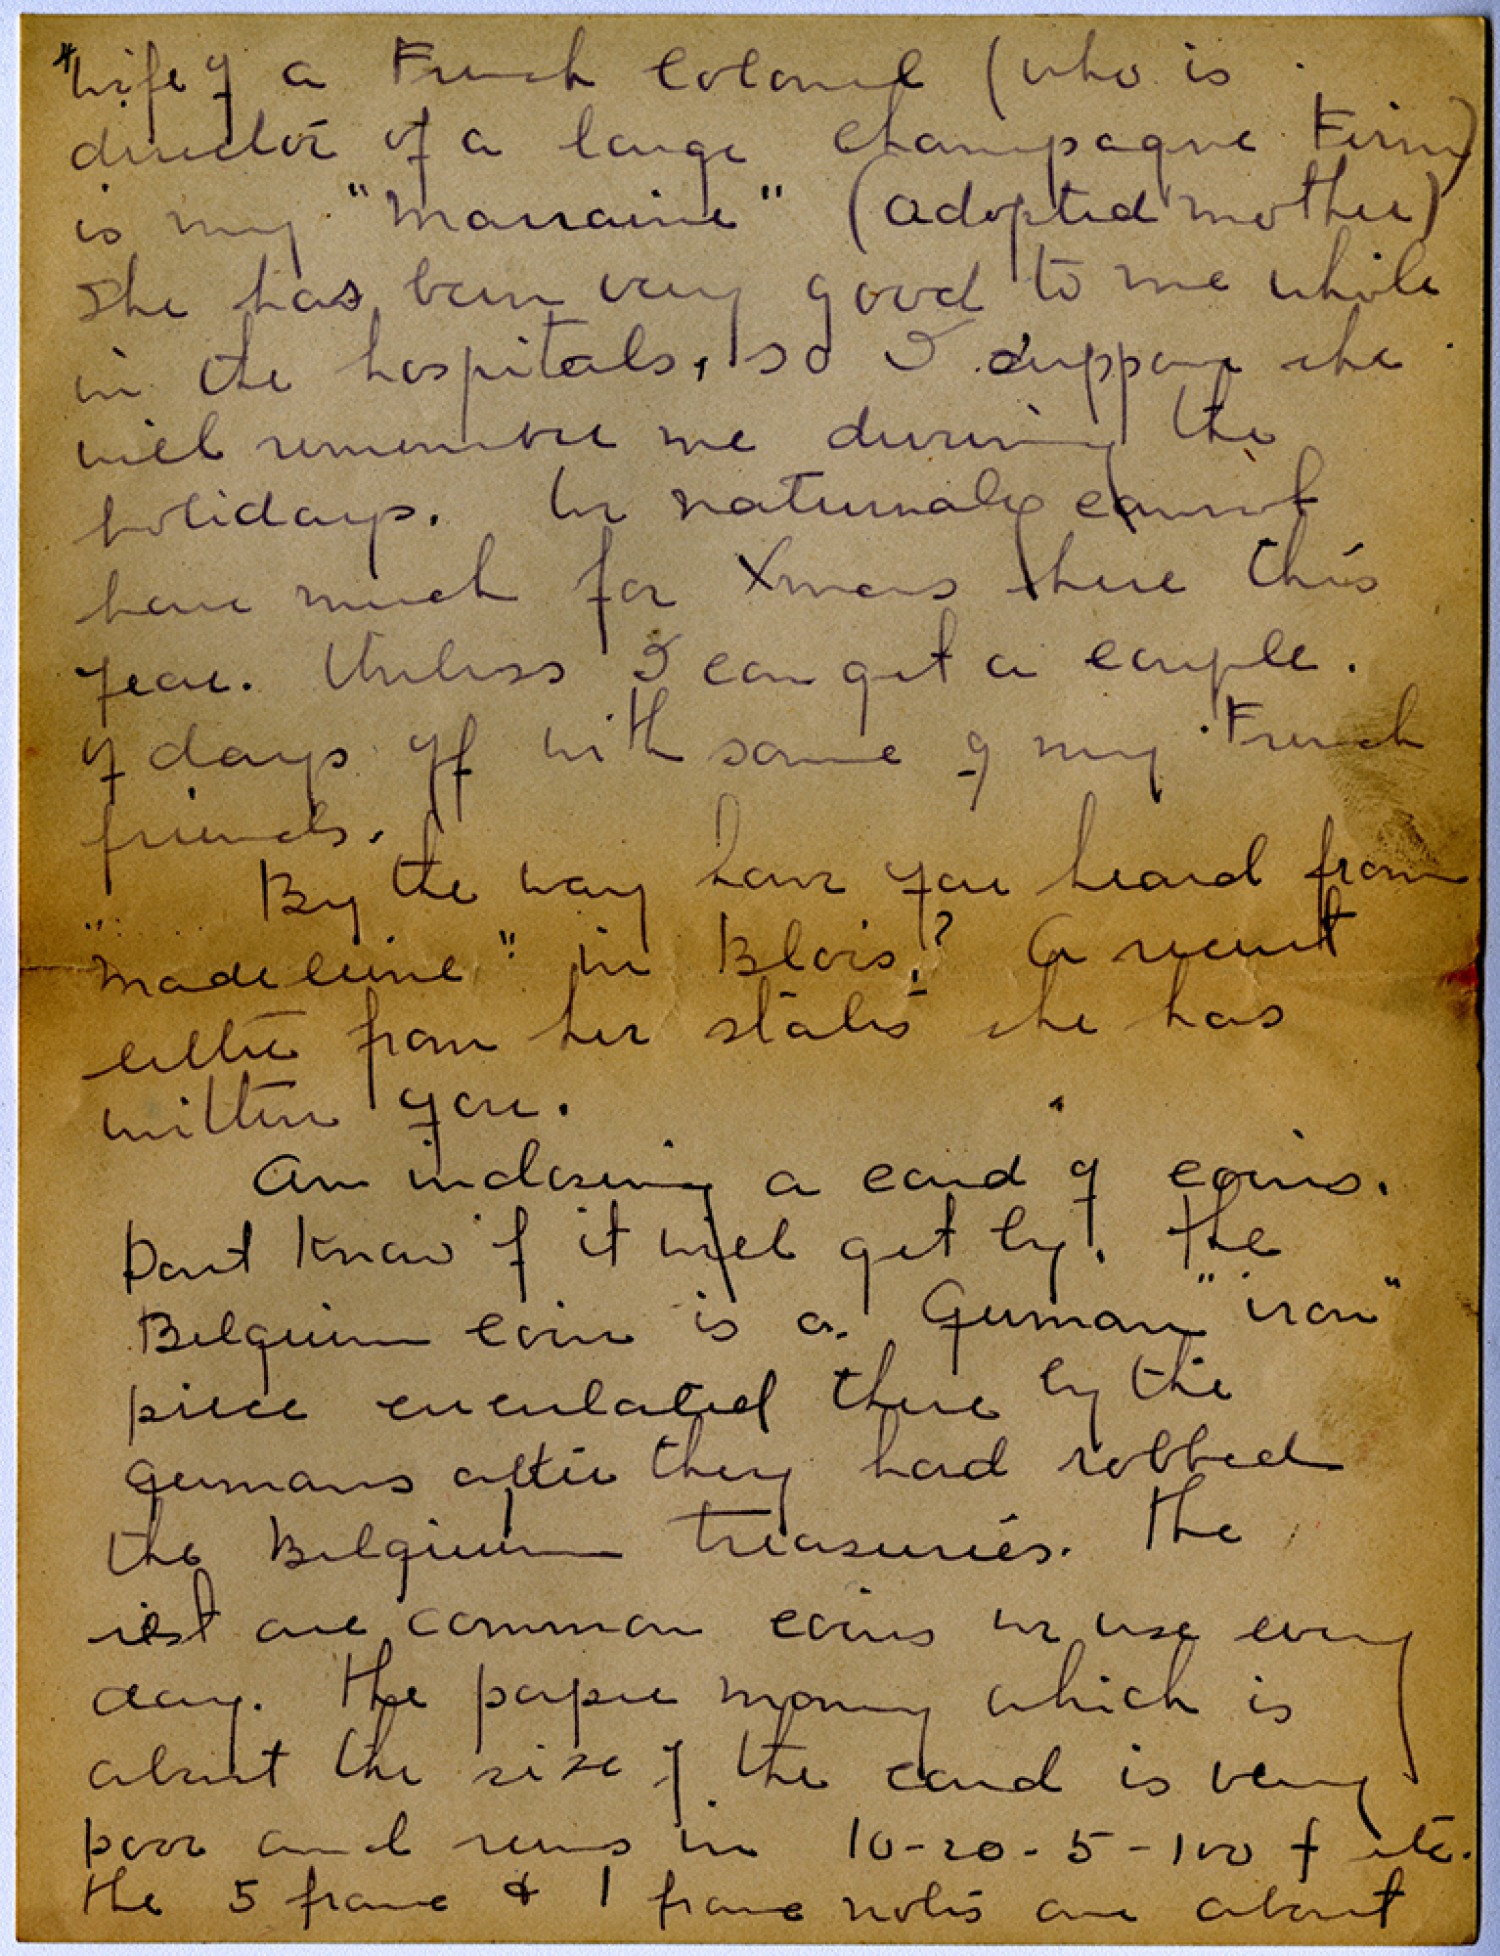 wife of a French Colonel (who is
director of a large Champagne Firm)
is my "Marraine" (adopted mother)
She has been very good to me while
in the hospitals, so I suppose she
will remember me during the
holidays. We naturally cannot
have much for Xmas here this
year. Unless I can get a couple
of days off with some of my French
friends.
By the way have you heard from
"Madeleine" in Blois? A recent
letter from her states she has
written you.
Am inclosing a card of coins.
Dont know if it will get by. The
Belgium coin is a German "iron"
piece circulated there by the
Germans after they had robbed
the Belgium treasuries. The
rest are common coins we use every
day. The paper money which is
about the size of the card is very
poor and runs in 10-20-5-100 f etc.
the 5 franc & 1 franc notes are about